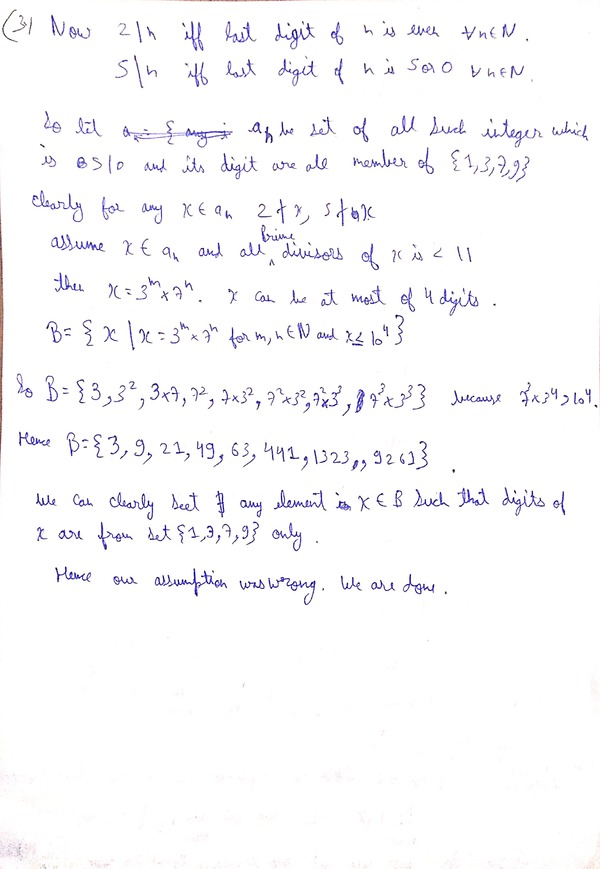 (3) Now 2|n iff last digit of n is even ∀n∈N.
5|n iff last digit of n is 5 or 0 ∀n∈N.
So let a_n be set of all such integer which
is >10 and its digit are all member of {1,3,7,9}
clearly for any x ∈ a_n 2∤x, 5∤x
assume x ∈ a_n and all Prime divisors of x is < 11
then x = 3^m × 7^n. x can be at most of 4 digits.
B = { x | x = 3^m × 7^n for m, n ∈ N and x ≤ 10^4 }
So B = {3, 3^2, 3×7, 7^2, 7×3^2, 7^2×3^2, 7^2×3^3, 7^3×3^3} because 7^3×3^4>10^4.
Hence B = {3, 9, 21, 49, 63, 441, 1323, 9261}.
We can clearly see ∄ any element x ∈ B such that digits of
x are from set {1,3,7,9} only.
Hence our assumption was wrong. We are done.